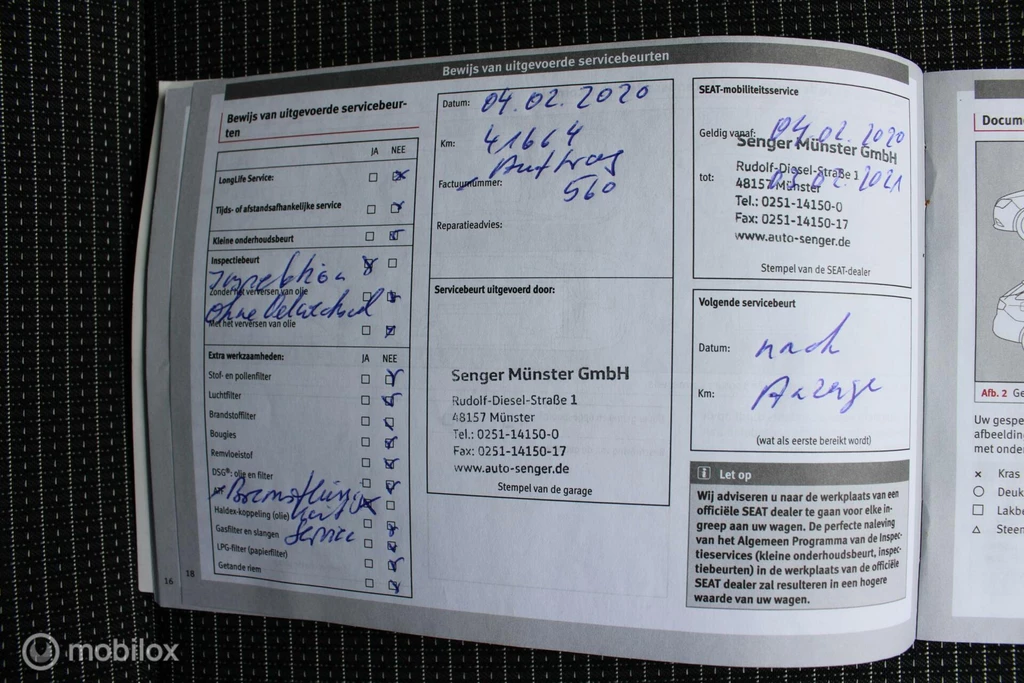 Bewijs van uitgevoerde servicebeurten
Bewijs van uitgevoerde servicebeur-
ten
JA NEE
LongLife Service:
Tijds- of afstandsafhankelijke service
Kleine onderhoudsbeurt
Inspectiebeurt
Inspektion
Zonder het verversen van olie
ohne
Met het verversen van olie
Extra werkzaamheden: JA NEE
Stof- en pollenfilter
Luchtfilter
Brandstoffilter
Bougies
Remvloeistof
DSG®: olie en filter
Haldex-koppeling (olie)
Service
Gasfilter en slangen
LPG-filter (papierfilter)
Getande riem
16
18
Datum: 04.02.2020
Km: 41664
Auftrag
Factuurnummer: 560
Reparatieadvies:
Servicebeurt uitgevoerd door:
Senger Münster GmbH
Rudolf-Diesel-Straße 1
48157 Münster
Tel.: 0251-14150-0
Fax: 0251-14150-17
www.auto-senger.de
Stempel van de garage
SEAT-mobiliteitsservice
Geldig vanaf: 04.02.2020
Senger Münster GmbH
Rudolf-Diesel-Straße 1
tot: 03.02.2021
48157 Münster
Tel.: 0251-14150-0
Fax: 0251-14150-17
www.auto-senger.de
Stempel van de SEAT-dealer
Volgende servicebeurt
Datum: nach
Km: Anzeige
(wat als eerste bereikt wordt)
i Let op
Wij adviseren u naar de werkplaats van een
officiële SEAT dealer te gaan voor elke in-
greep aan uw wagen. De perfecte naleving
van het Algemeen Programma van de Inspec-
tieservices (kleine onderhoudsbeurt, inspec-
tiebeurten) in de werkplaats van de officiële
SEAT dealer zal resulteren in een hogere
waarde van uw wagen.
Docume
Afb. 2 Ge
Uw gespe
afbeeldin
met onder
Kras
Deuk
Lakbe
Steen
mobilox